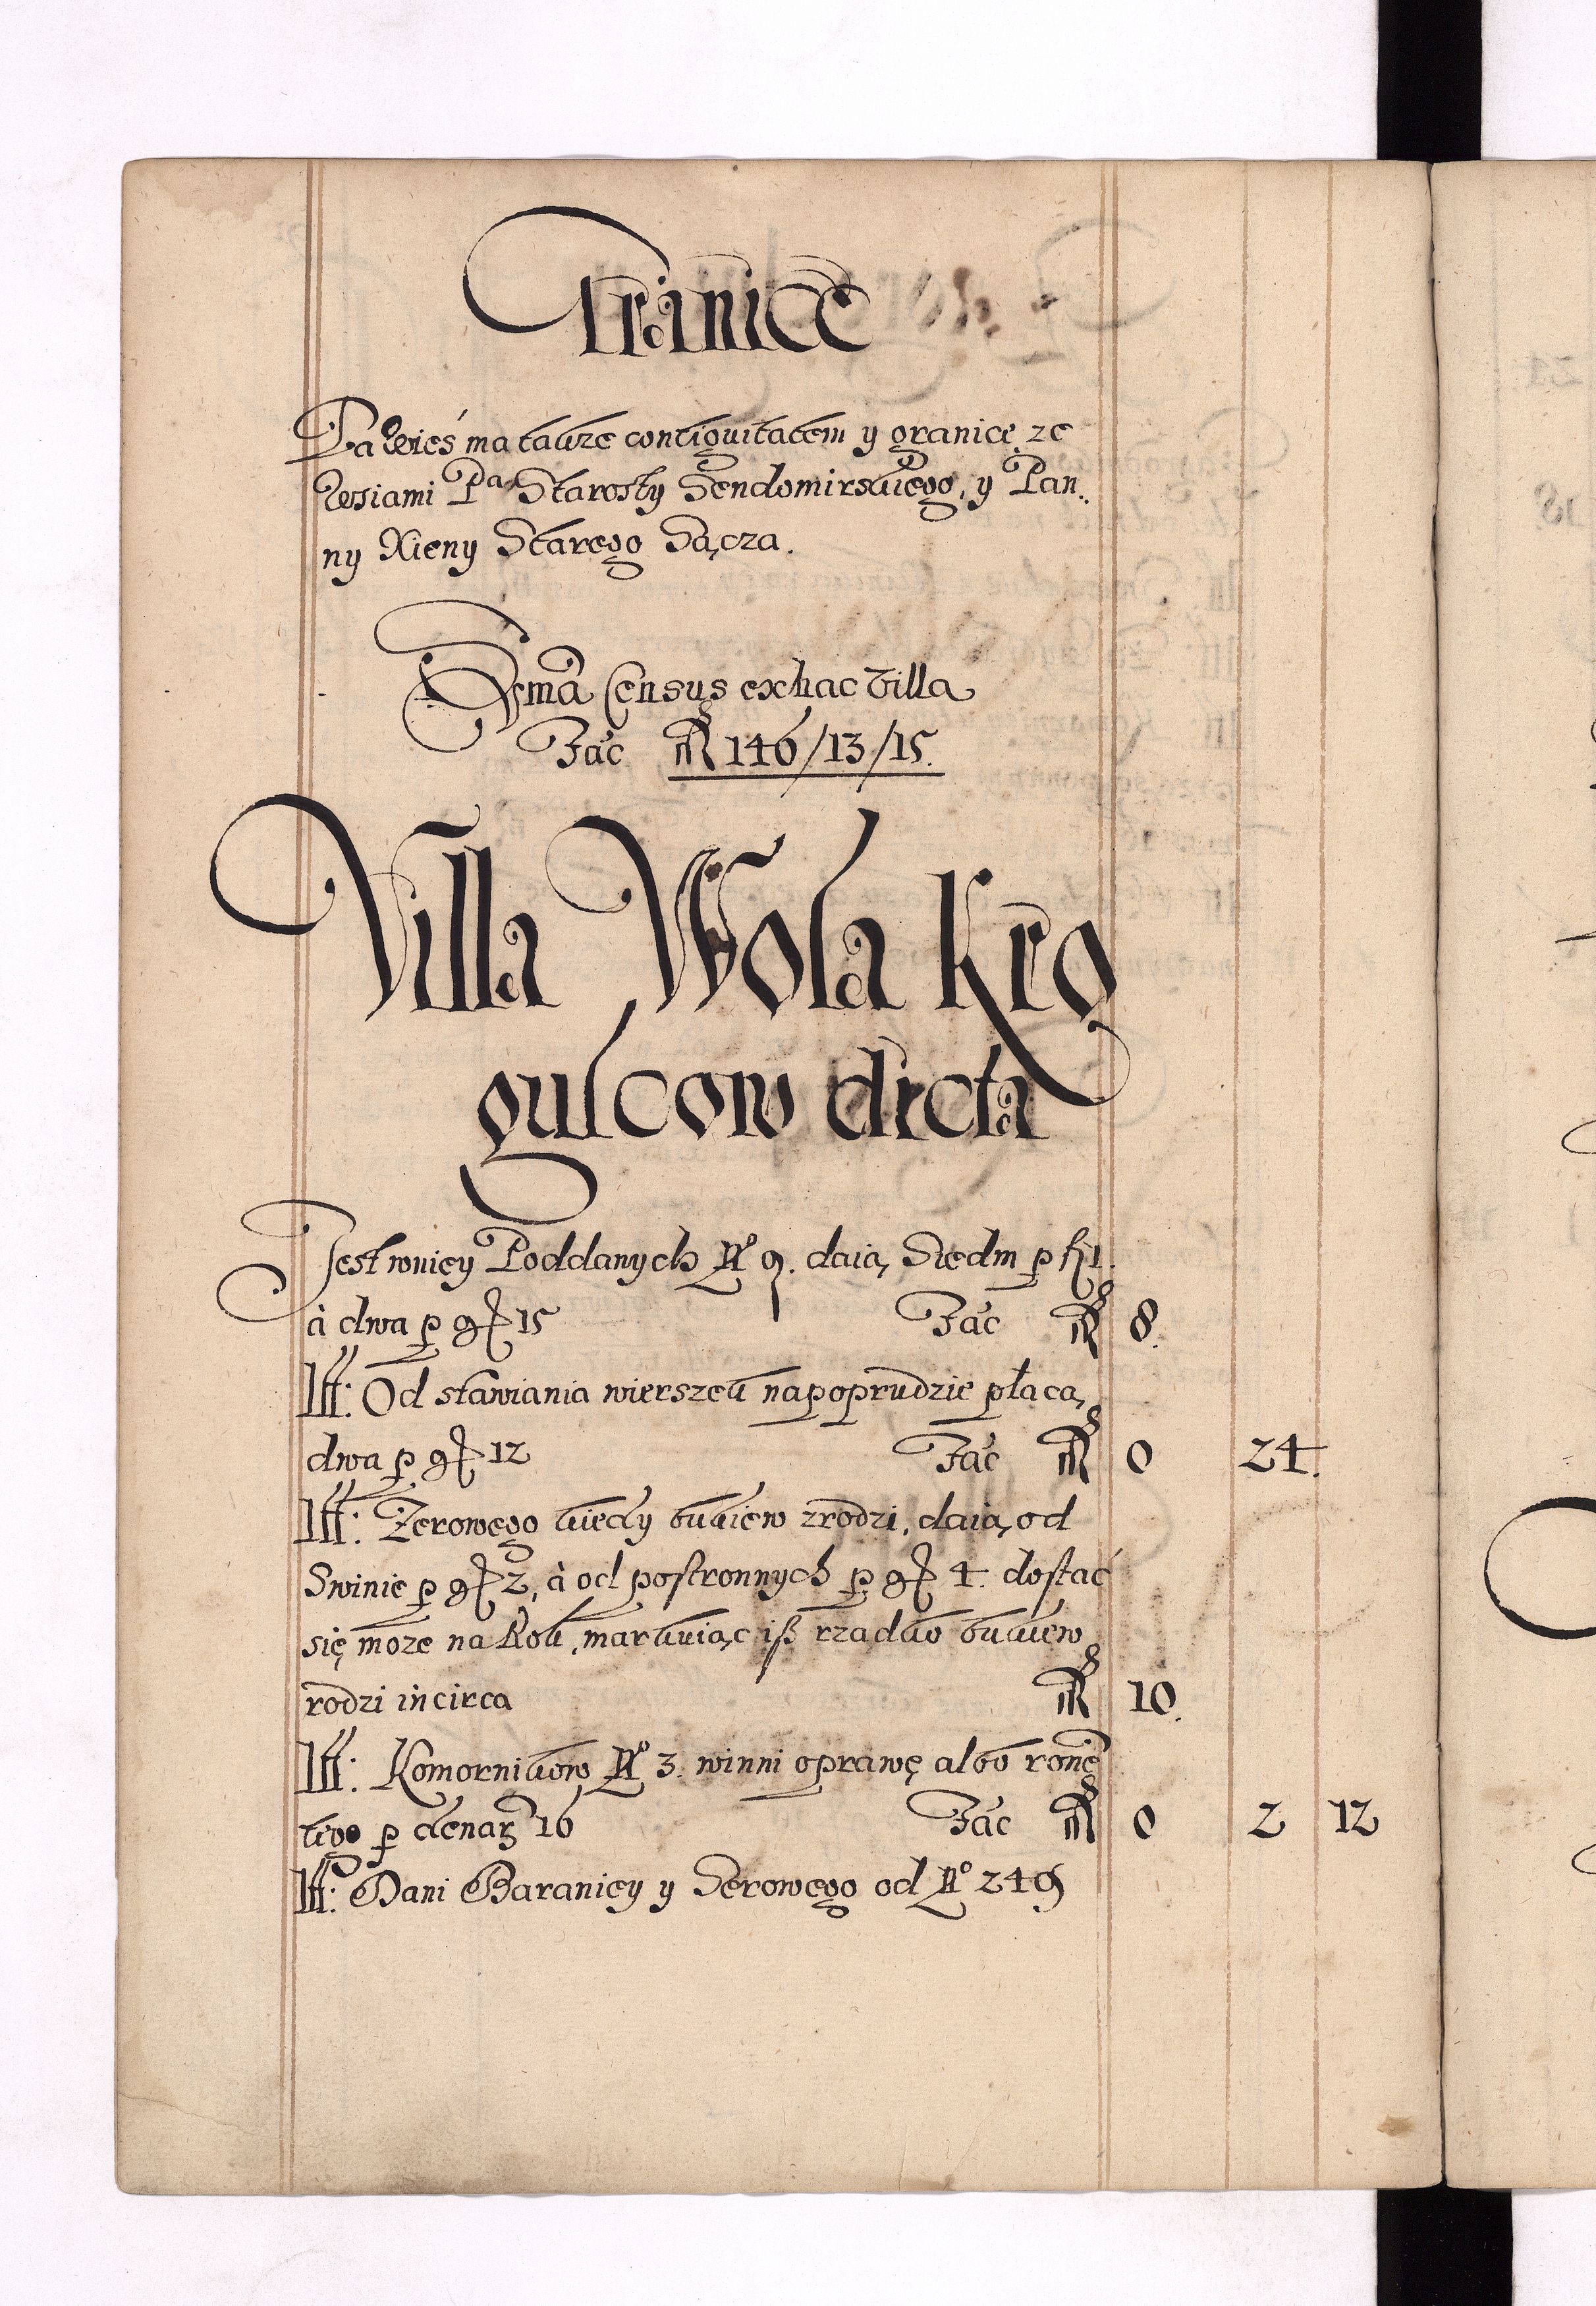 Granice
Ta Wieś ma takze contiguitatem y granice ze
Wsiami Pa Starosty Sendomirskiego, y Pan„
ny Xieny Starego Sącza.
Sum̃a Census ex hac Villa
Fac ƒ 146/13/15.
Villa Wola Kro
gulcow dicta
Jest w niey Poddanych No 9. daią Siedm p ƒ 1.
à dwa p g 15 Fac ƒ 8.
Itt: Od stawiania wierszek na poprudzie płacą
dwa p g 12 Fac ƒ 0 24.
Itt: Zerowego kiedy bukiew zrodzi, daią od
Swinie p g 2, à od postronnych p g 4. dostać
się moze na Rok, markuiąc iß rzadko bukiew
rodzi in circa ƒ 10.
Itt: Komornikow No 3. winni oprawę albo ronie
kgo p denar 16 Fac ƒ 0 2 12
Itt: Dani Baraniey y Serowego od No 249